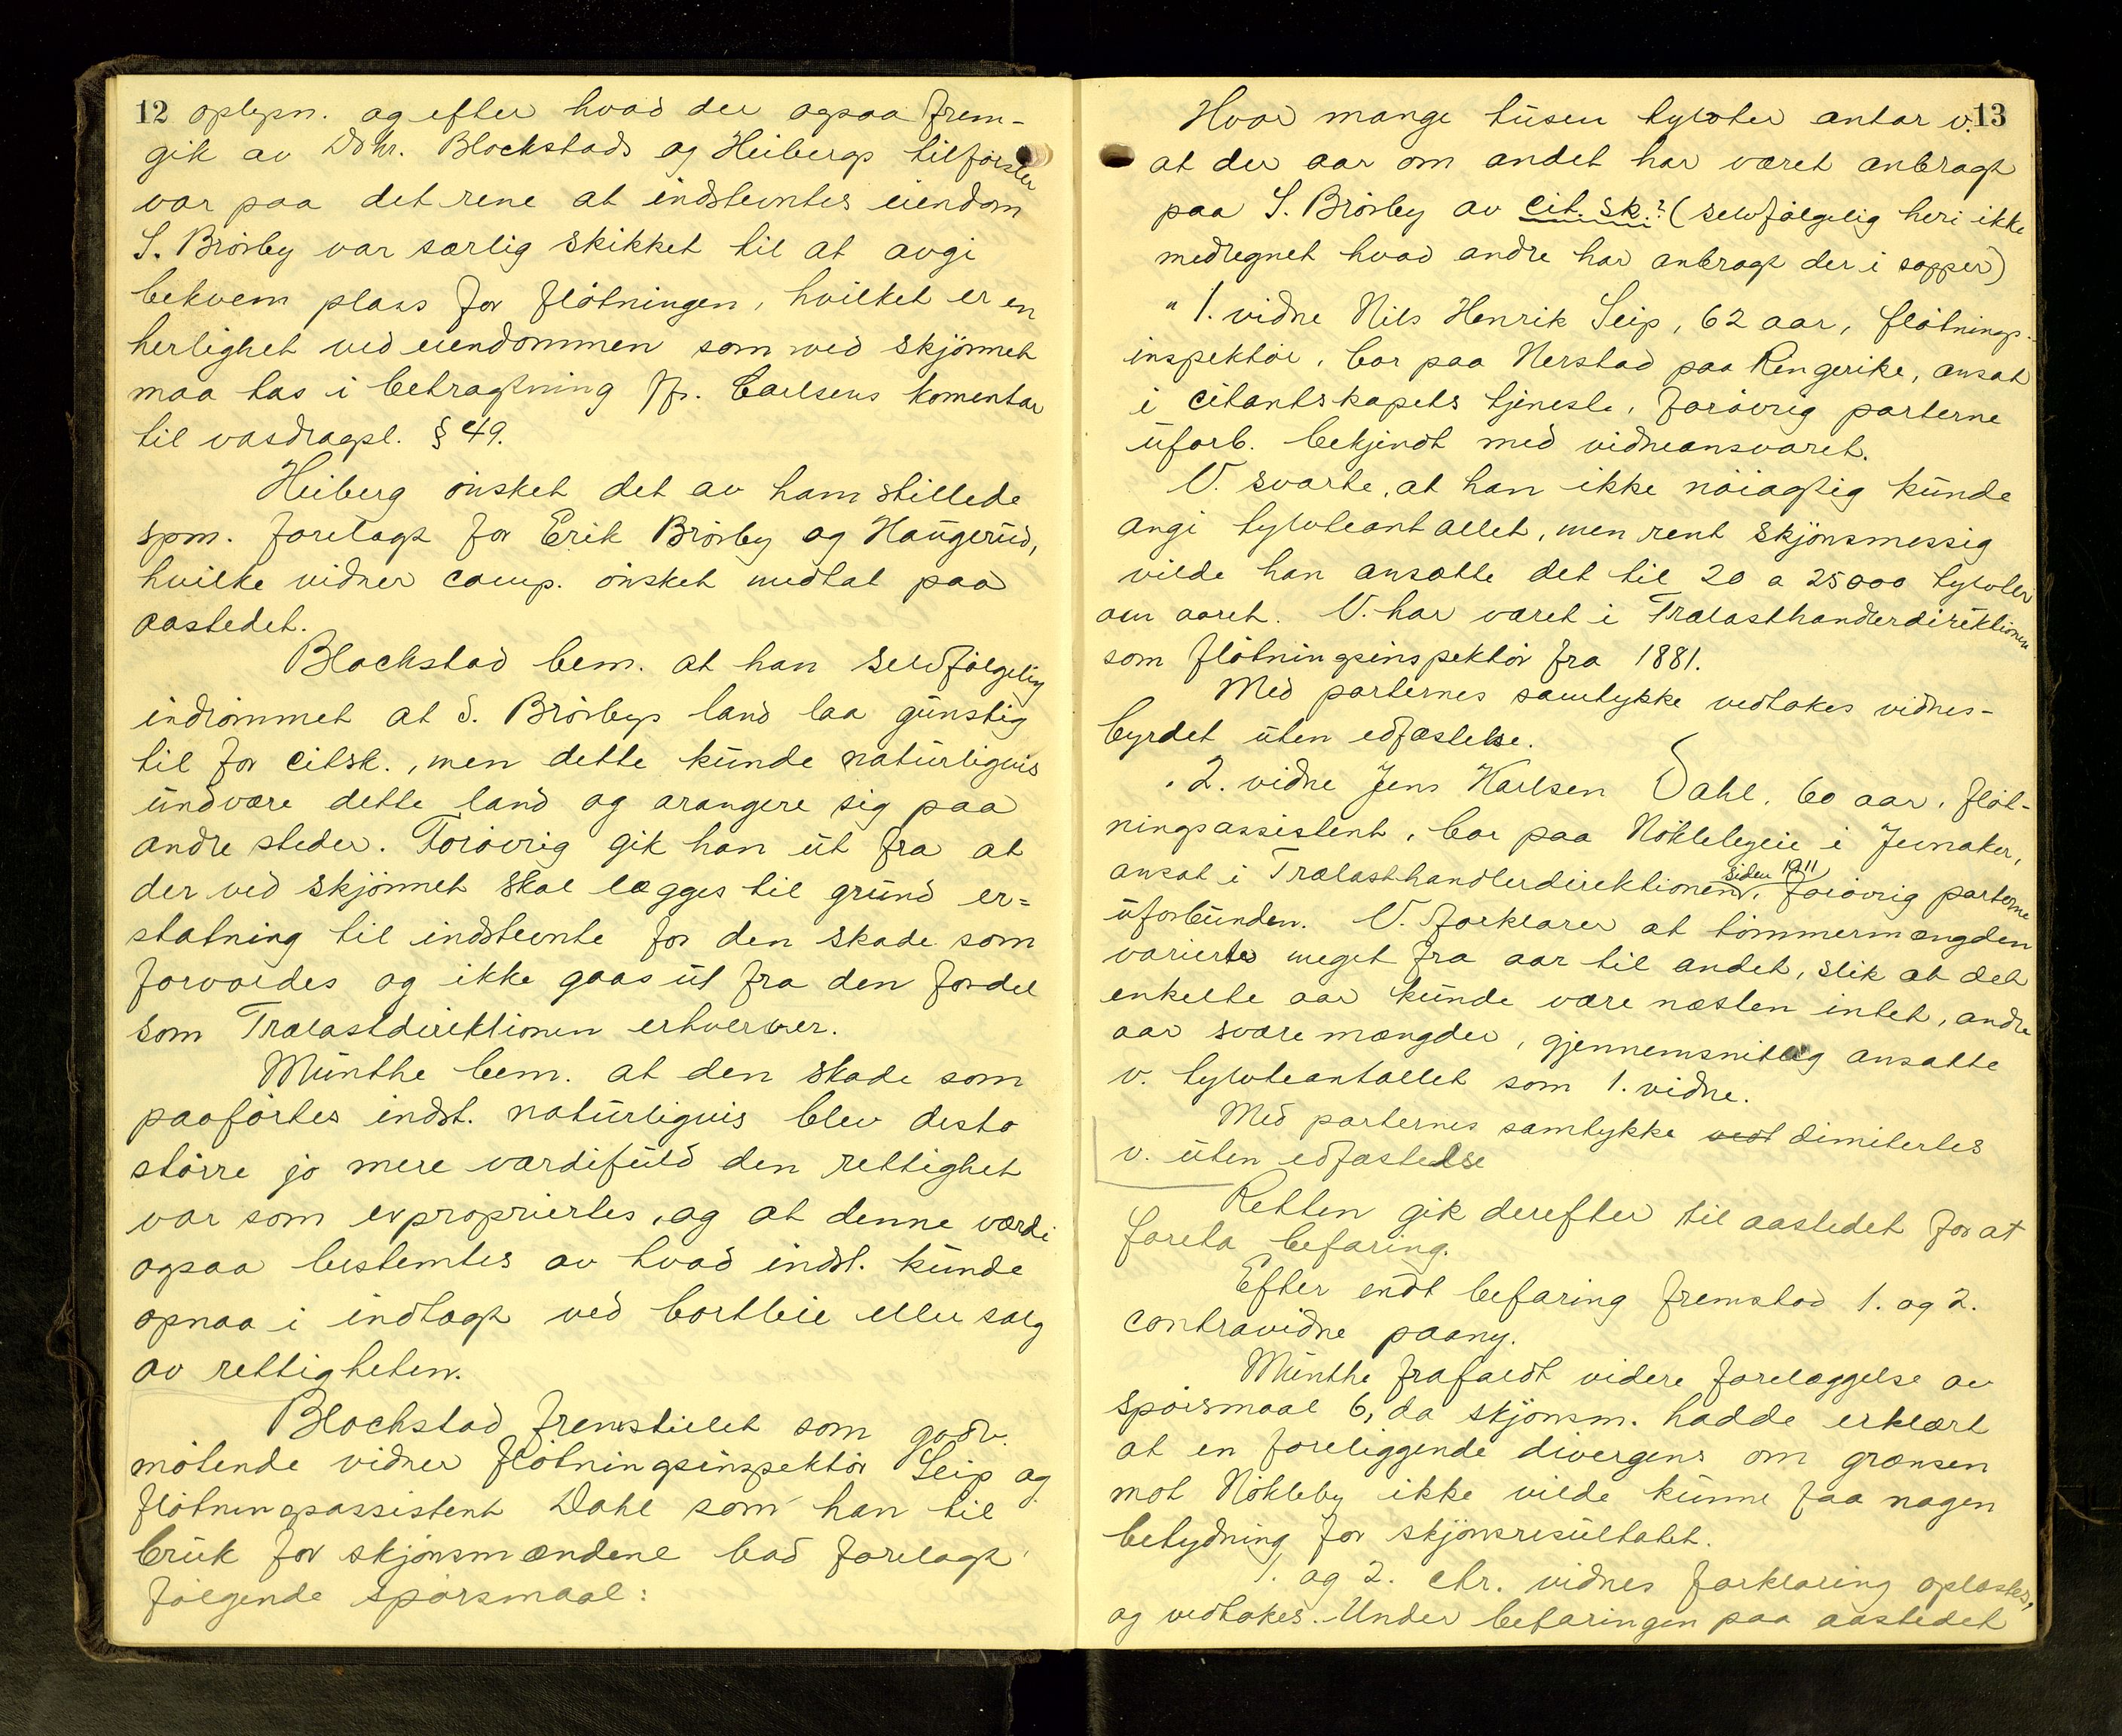 12 oplysn. og efter hvad der ogsaa frem-
gik av Dhr. Blockstads og Heibergs tilførsler
var paa det rene at indstevntes eiendom
S. Brørby var særlig skikket til at avgi
bekvem plass for fløtningen, hvilket er en
herlighet ved eiendommen som ved skjønnet
maa tas i betragtning jfr. Carlsens komentar
til vasdragsl. § 49.
Heiberg ønsket det av ham stillede
spm. forelagt for Erik Brørby og Haugerud,
hvilke vidner comp. ønsket mottat paa
aastedet.
Blockstad bem. at han selvfølgelig
indrømmet at S. Brørbys land laa gunstig
til for citsk., men dette kunde naturligvis
undvære dette land og arangere sig paa
andre steder. Forøvrig gik han ut fra at
der ved skjønnet skal lægges til grund er=
statning til indstevnte for den skade som
forvoldes og ikke gaas ut fra den fordel
som Trælastdirektionen erhverver.
Münthe bem. at den skade som
paaførtes indst. naturligvis blev desto
større jo mere værdifuld den rettighet
var som expropriertes, og at denne værdi
ogsaa bestemtes av hvad indst. kunde
opnaa i indtægt ved bortleie eller salg
av rettigheten.
Blockstad fremstillet som godv.
møtende vidner fløtningsinspektør Seip og
fløtningsassistent Dahl som han til
bruk for skjønsmændene bad forelagt
følgende spørsmaal:
13
Hvor mange tusen tylvter antar v.
at der aar om andet har været anbragt
paa S. Brørby av cit. sk.? (selvfølgelig heri ikke
medregnet hvad andre har anbragt der i sopper)
" 1. vidne Nils Henrik Seip, 62 aar, fløtnings-
inspektør, bor paa Nerstad paa Ringerike, ansat
i citantskapets tjeneste, forøvrig parterne
uforb. bekjendt med vidneansvaret.
V. svarte, at han ikke nøiagtig kunde
angi tylvteantallet, men rent skjønsmessig
vilde han ansætte det til 20 a 25000 tylvter
om aaret. V. har været i Trælasthandlerdirektionen
som fløtningsinspektør fra 1881.
Med parternes samtykke vedtokes vidnes-
byrdet uten edfæstelse.
. 2. vidne Jens Karlsen Dahl, 60 aar, fløt-
ningsassistent, bor paa Nøklebyeie i Jevnaker,
ansat i Trælasthandlerdirektionen siden 1911, forøvrig parterne
uforbunden. V. forklarer at tømmermængden
varierte meget fra aar til andet, slik at det
enkelte aar kunde være næsten intet, andre
aar svære mængder, gjennemsnitlig ansatte
v. tylvteantallet som 1. vidne.
Med parternes samtykke vedt dimitertes
v. uten edfæstelse
Retten gik derefter til aastedet for at
foreta befaring.
Efter endt befaring fremstod 1. og 2.
contravidne paany.
Münthe frafaldt videre forelæggelse av
spørsmaal 6, da skjønsm. hadde erklært
at en foreliggende divergens om grænsen
mot Nøkleby ikke vilde kunne faa nogen
betydning for skjønsresultatet.
1. og 2. ctr. vidnes forklaring oplæstes,
og vedtokes. Under befaringen paa aastedet